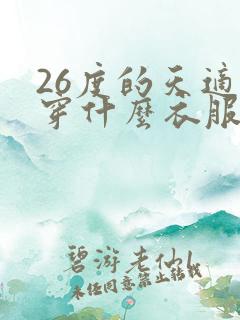 26度的天適
穿什麼衣服
碧游老仙
未经同意禁止转载